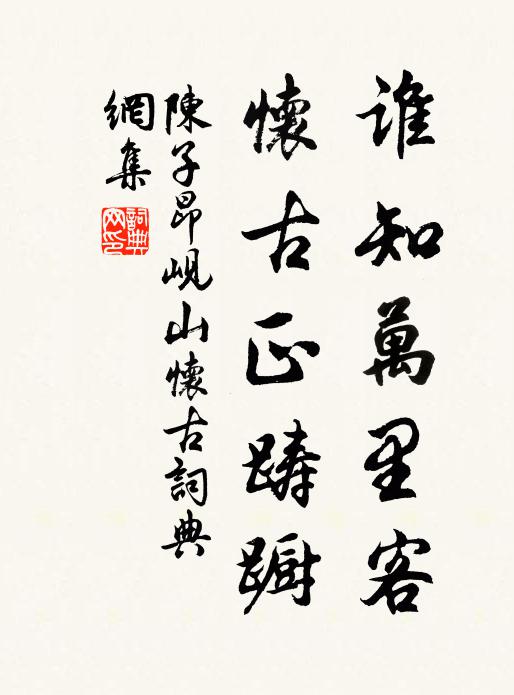 誰知萬里客
懷古正躊躕
陳子昂峴山懷古詞典
網集
詞典網印